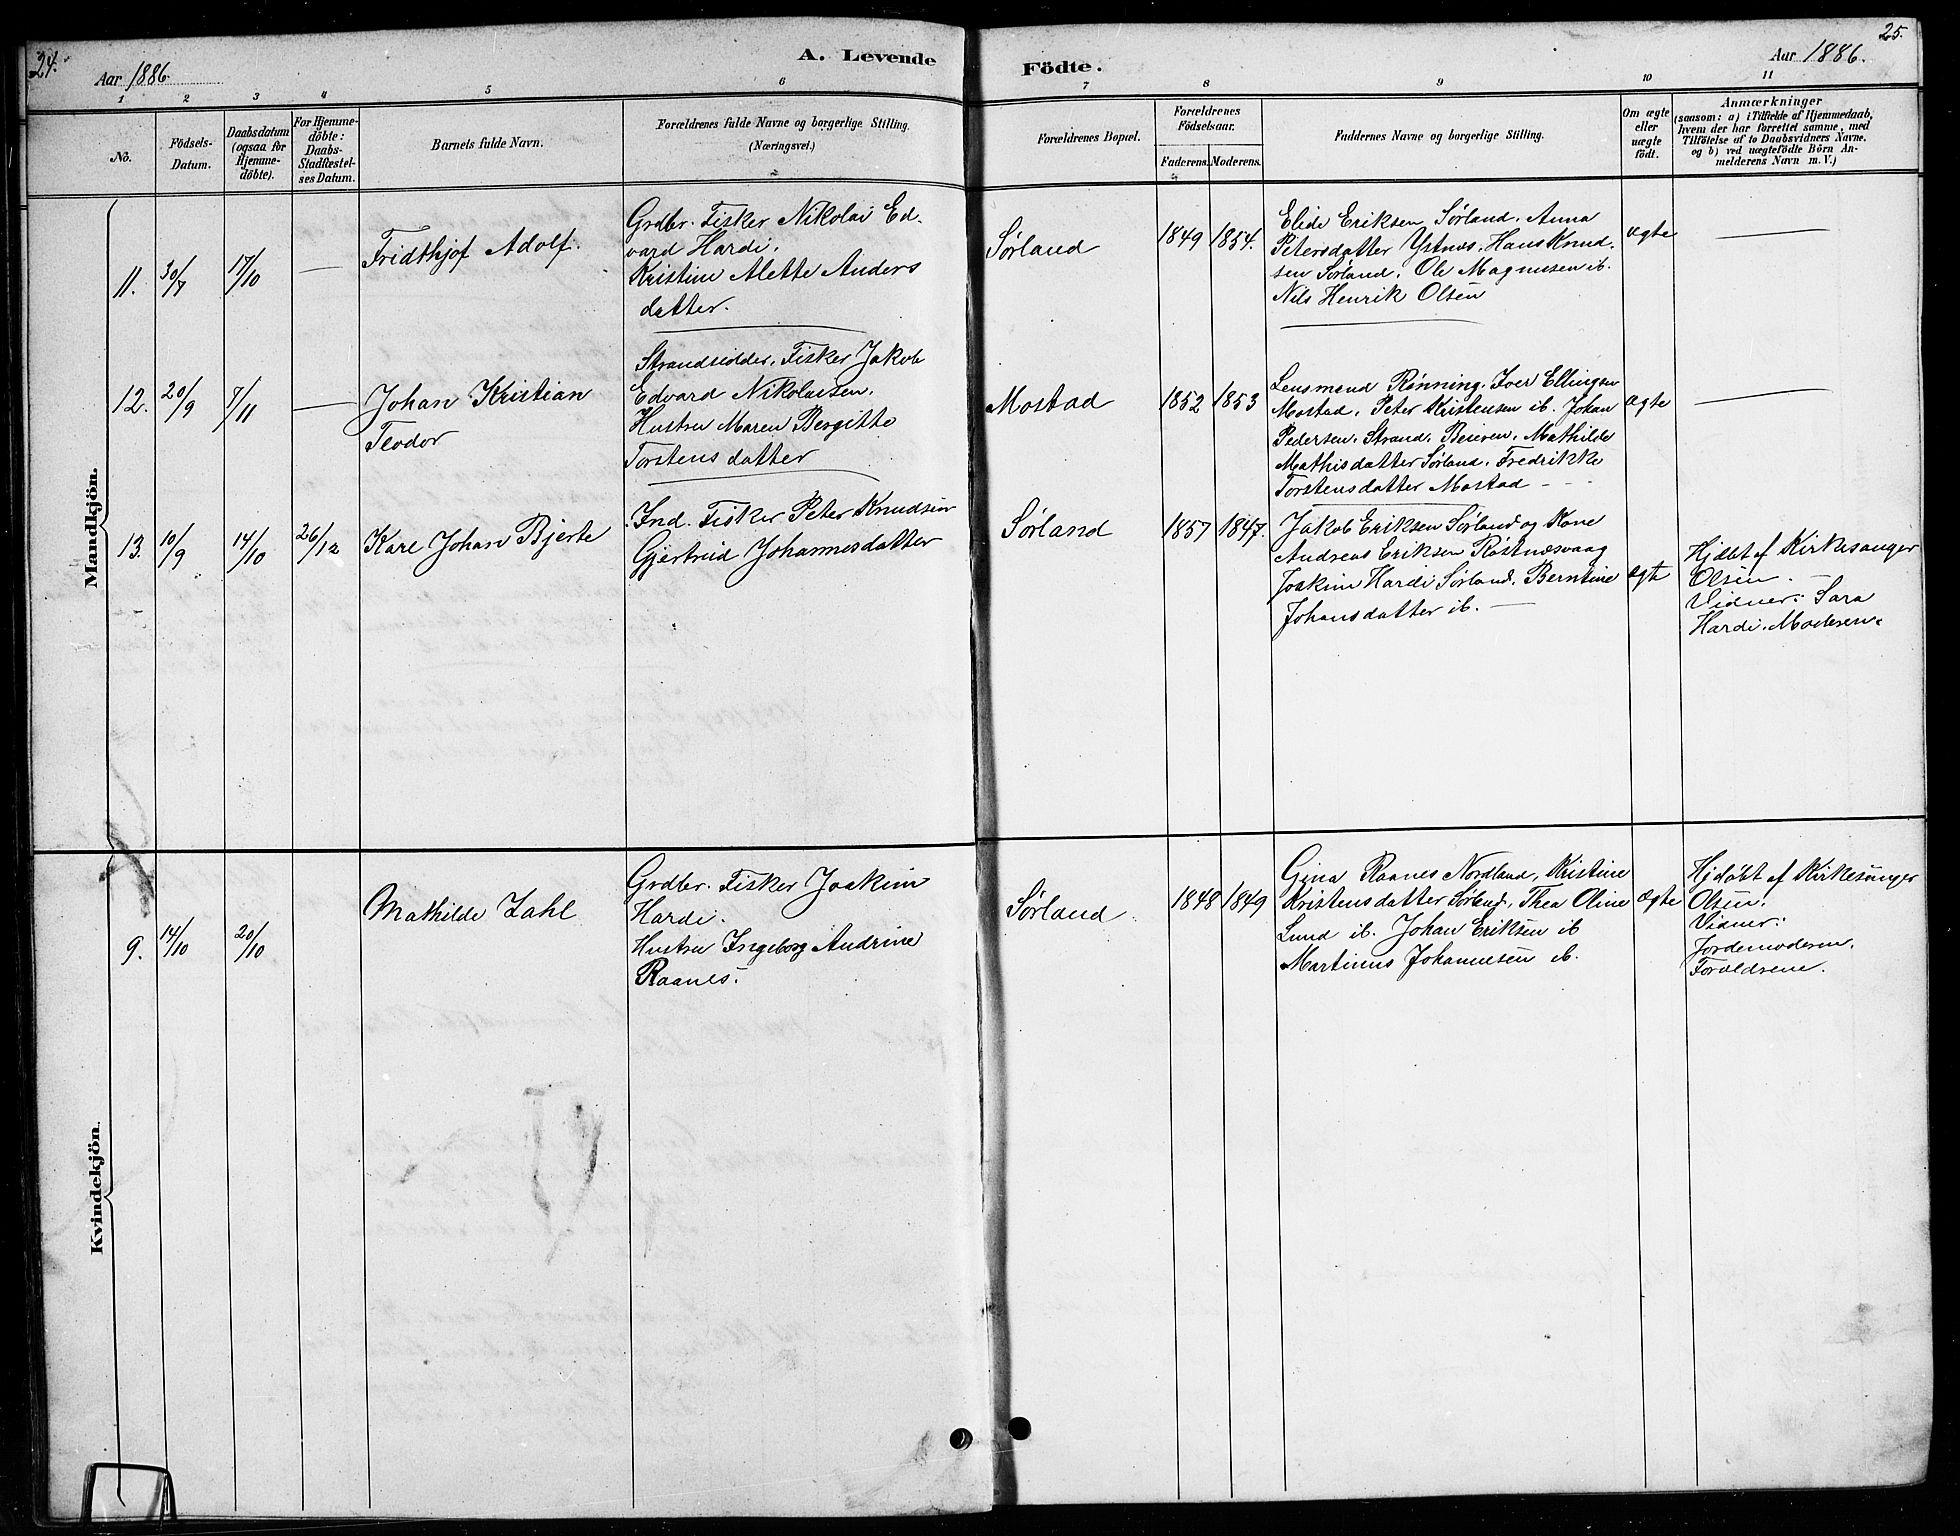 24.
Aar 1886.
A. Levende
Födte.
Aar 1886.
25.
1
2
3
4
5
6
7
8
9
10
11
No.
Födsels-
Datum.
Daabsdatum
(ogsaa for
Hjemme-
döbte).
For Hjemme-
döbte:
Daabs-
Stadfæstel-
ses Datum.
Barnets fulde Navn.
Forældrenes fulde Navne og borgerlige Stilling.
(Næringsvei.)
Forældrenes Bopæl.
Forældrenes
Födselsaar.
Faderens.
Moderens.
Faddernes Navne og borgerlige Stilling.
Om ægte
eller
uægte
födt.
Anmærkninger
(saasom: a) i Tilfælde af Hjemmedaab,
hvem der har forrettet samme, med
Tilföielse af to Daabsvidners Navne,
og b) ved uægtefödte Börn An-
melderens Navn m. V.)
Mandkjön.
11.
30/7
17/10
—
Fridthjof Adolf.
Grdbr. Fisker Nikolai Ed-
vard Hardi.
Kristine Alette Anders
datter.
Sørland
1849
1854.
Elide Eriksen Sørland. Anna
Petersdatter Ystnes. Hans Knud-
sen Sørland. Ole Magnusen ib.
Nils Henrik Olsen
ægte
—
12.
20/9
7/11
—
Johan Kristian
Teodor
Strandsidder, Fisker Jakob
Edvard Nikolaisen.
Hustru Maren Bergitte
Torstensdatter
Mostad
1852
1853
Lensmand Rønning. Iver Ellingsen
Mostad. Peter Kristensen ib. Johan
Pedersen. Strand. Beieren. Mathilde
Mathisdatter Sørland. Fredrikke
Torstensdatter Mostad - - -
ægte
—
13.
10/9
14/10
26/12
Karl Johan Bjerte
Ind. Fisker Peter Knudsen
Gjertrud Johannesdatter
Sørland
1857
1847.
Jakob Eriksen Sørland og Kone
Andreas Eriksen Røstnesvaag
Joakim Hardi Sørland. Berntine
Johansdatter ib. —
ægte
Hjdøbt af Kirkesanger
Olsen.
Vidner: Sara
Hardi. Moderen.
Kvindekjön.
9.
14/10
20/10
Mathilde Zahl
Grdbr. Fisker Joakim
Hardi.
Hustru Ingeborg Andrine
Raanes.
Sørland
1848
1849
Gina Raanes Nordland, Kristine
Kristensdatter Sørland, Thea Oline
Lund ib. Johan Eriksen ib
Martinus Johannesen ib.
ægte
Hjdøbt af Kirkesanger
Olsen.
Vidner:
Jordemoderen.
Forældrene.